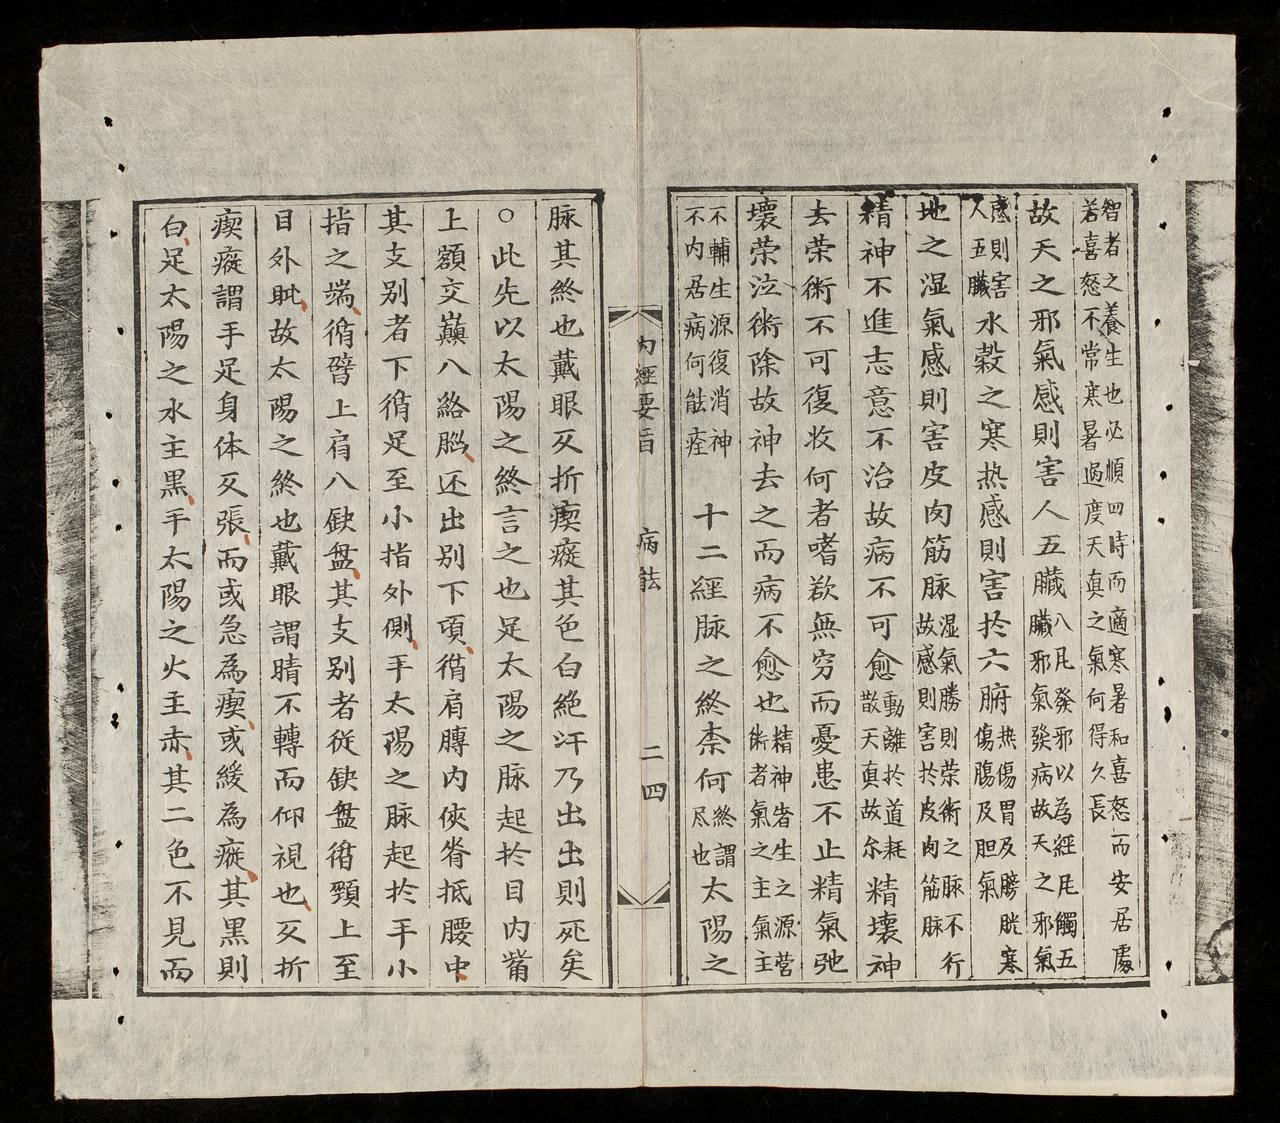 智者之養生也必順四時而適寒暑和喜怒而安居處
若喜怒不常寒暑過度天真之氣何得久長
故天之邪氣感則害人五臟八凡發邪以為經凡觸五
臟邪氣發病故天之邪氣
感則害
人五臟水穀之寒热感則害扵六腑热傷胃及膀胱寒
傷腸及胆氣
地之湿氣感則害皮肉筋脉湿氣勝則荣術之脉不行
故感則害扵皮肉筋脉
精神不進志意不治故病不可愈動離扵道耗
散天真故尔精壊神
去荣術不可復收何者嗜欲無穷而憂患不止精氣弛
壊荣泣術除故神去之而病不愈也精神者生之源营
術者氣之主氣主
不輔生源復消神
不内居病何能痊 十二經脉之終柰何終謂
尽也太陽之
内經要旨 病能 二四
脉其終也戴眼反折瘈瘲其色白絶汗乃出出則死矣
○此先以太陽之終言之也足太陽之脉起扵目内眥
上額交巔入絡腦还出别下項循肩膊内俠脊抵腰中
其支别者下循足至小指外側手太陽之脉起扵手小
指之端循臂上肩入缺盆其支别者従缺盆循頸上至
目外眦故太陽之終也戴眼謂睛不轉而仰視也反折
瘈瘲謂手足身体反張而或急為瘈或緩為瘲其黒則
白足太陽之水主黒手太陽之火主赤其二色不見而